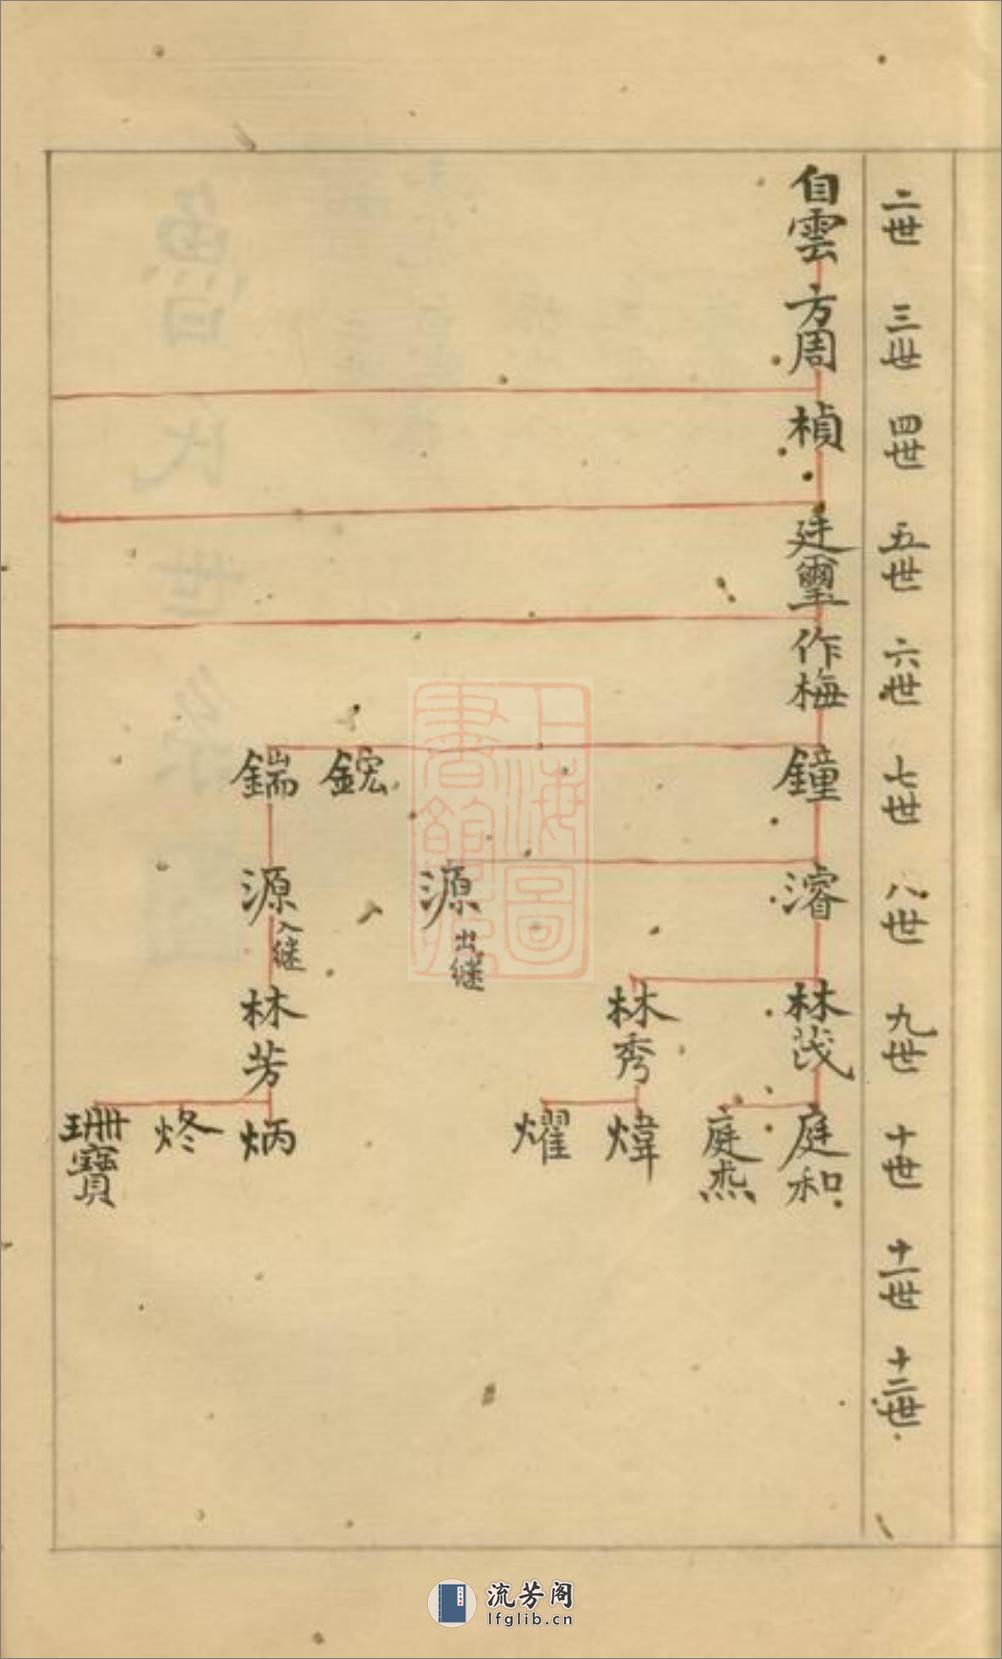 二世 三世 四世 五世 六世 七世 八世 九世 十世 十一世 十二世
自雲 方周 楨 廷璽 作梅 鐘 濬 林茂 庭和
庭杰
林秀 煒
燿
源 出継
鋐
鍴 源 入継 林芳 炳
炵
珊寶
魯氏世系圖
上海圖書館藏
流芳阁
lfglib.cn